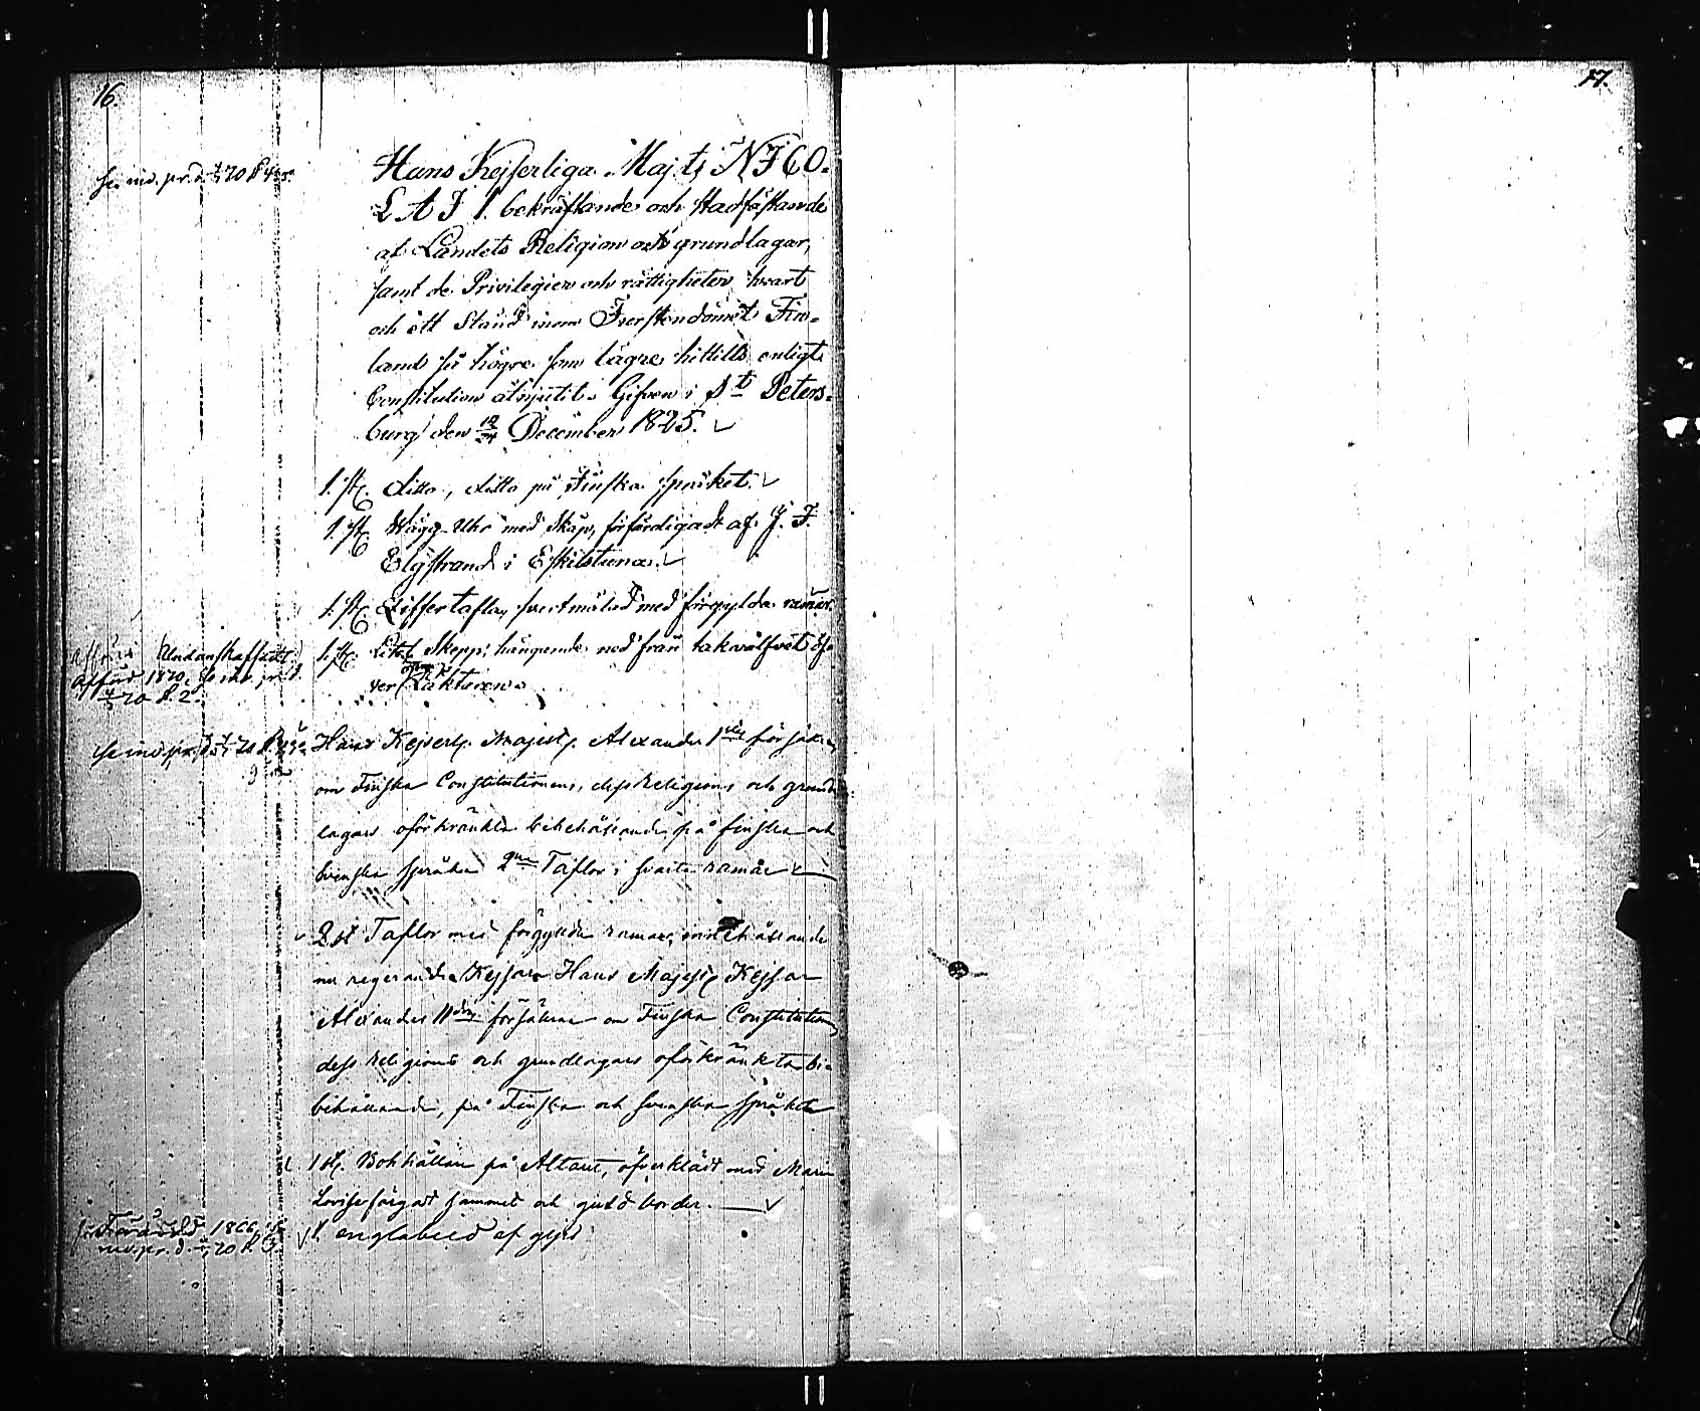 16.
17.
Hans Kejserliga Maj:ts NICO-
LAI 1. bekräftande och stadfästande
af Landets Religion och grundlagar,
samt de Privilegier och rättigheter hvart
och ett Stånd inom Furstendömet Fin-
land så högre som lägre hittills enligt
Constitution åtnjutit. Gifven i St Peters-
burg den 12/24 December 1825. ✓
1. st. ditto, ditto på Finska språket. ✓
1. st. Wägg-Uhr med Skåp, förfärdigadt af J. F.
Elgstrand i Eskilstuna. ✓
1. st. Ziffertafla, svartmålad med förgylda ramar.
1. st. Litet Skepp, hängande ned från takvalfvet öf-
ver Läkturen.
Undanskaffadt
1870, se inv. pr. d.
1/5 70 P. 2.
Hans Kejserl. Majest. Alexander 1stes försäkran
om Finska Constitutionens, dess Religions och grund-
lagars oförkränkta bibehållande på finska och
svenska språken 2ne Taflor i svarta ramar ✓
2 st Taflor med förgyllda ramar, innehållande
nu regerande Kejsare Hans Majest. Kejsar
Alexander II försäkran om Finska Constitutions
dess Religions och grundlagars oförkränkta bi-
behållande, på Finska och svenska språken
1 st. Bokhållare på Altaret, öfverklädt med Marie
Lovise färgadt sammet och guld border. ✓
1. englabild af gips